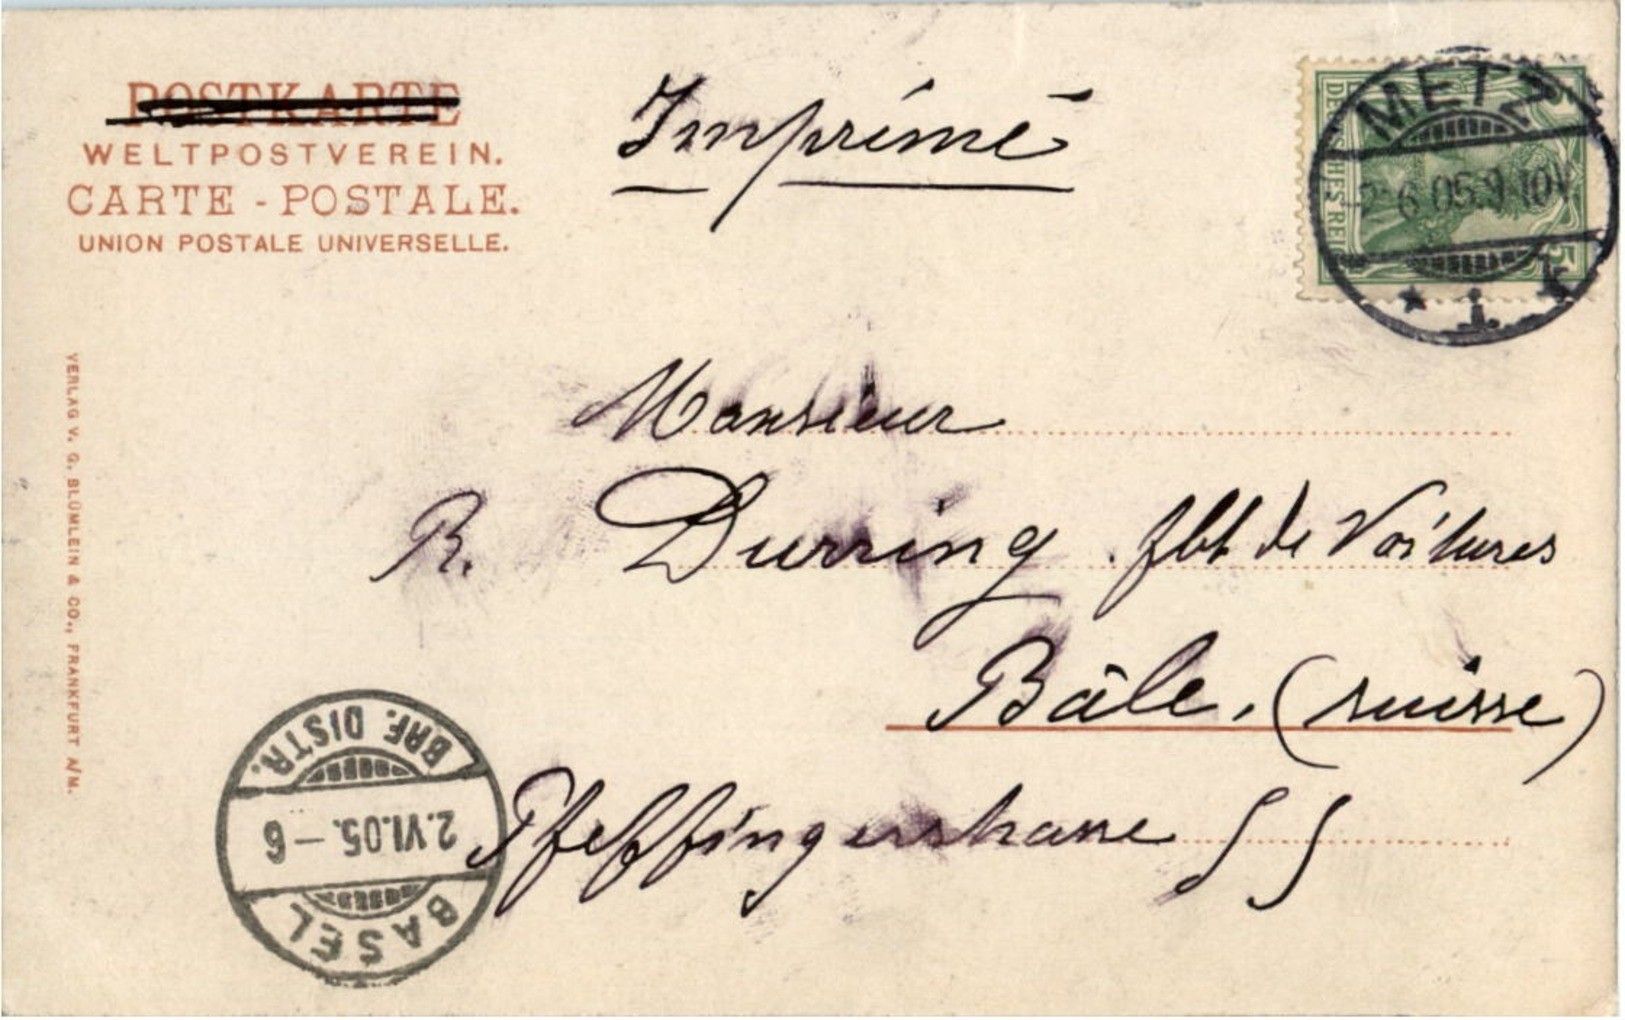 POSTKARTE
WELTPOSTVEREIN.
CARTE - POSTALE.
UNION POSTALE UNIVERSELLE.
Imprimé
DEUTSCHES REICH
5
METZ
2 6 05.9-10V
* 1 *
VERLAG V. G. BLÜMLEIN & CO., FRANKFURT A/M.
Monsieur
R. Durring . fbt de Voitures
Bâle, (suisse)
Pfeffingerstrasse 55
BASEL
2.VI.05.-6
BRF. DISTR.